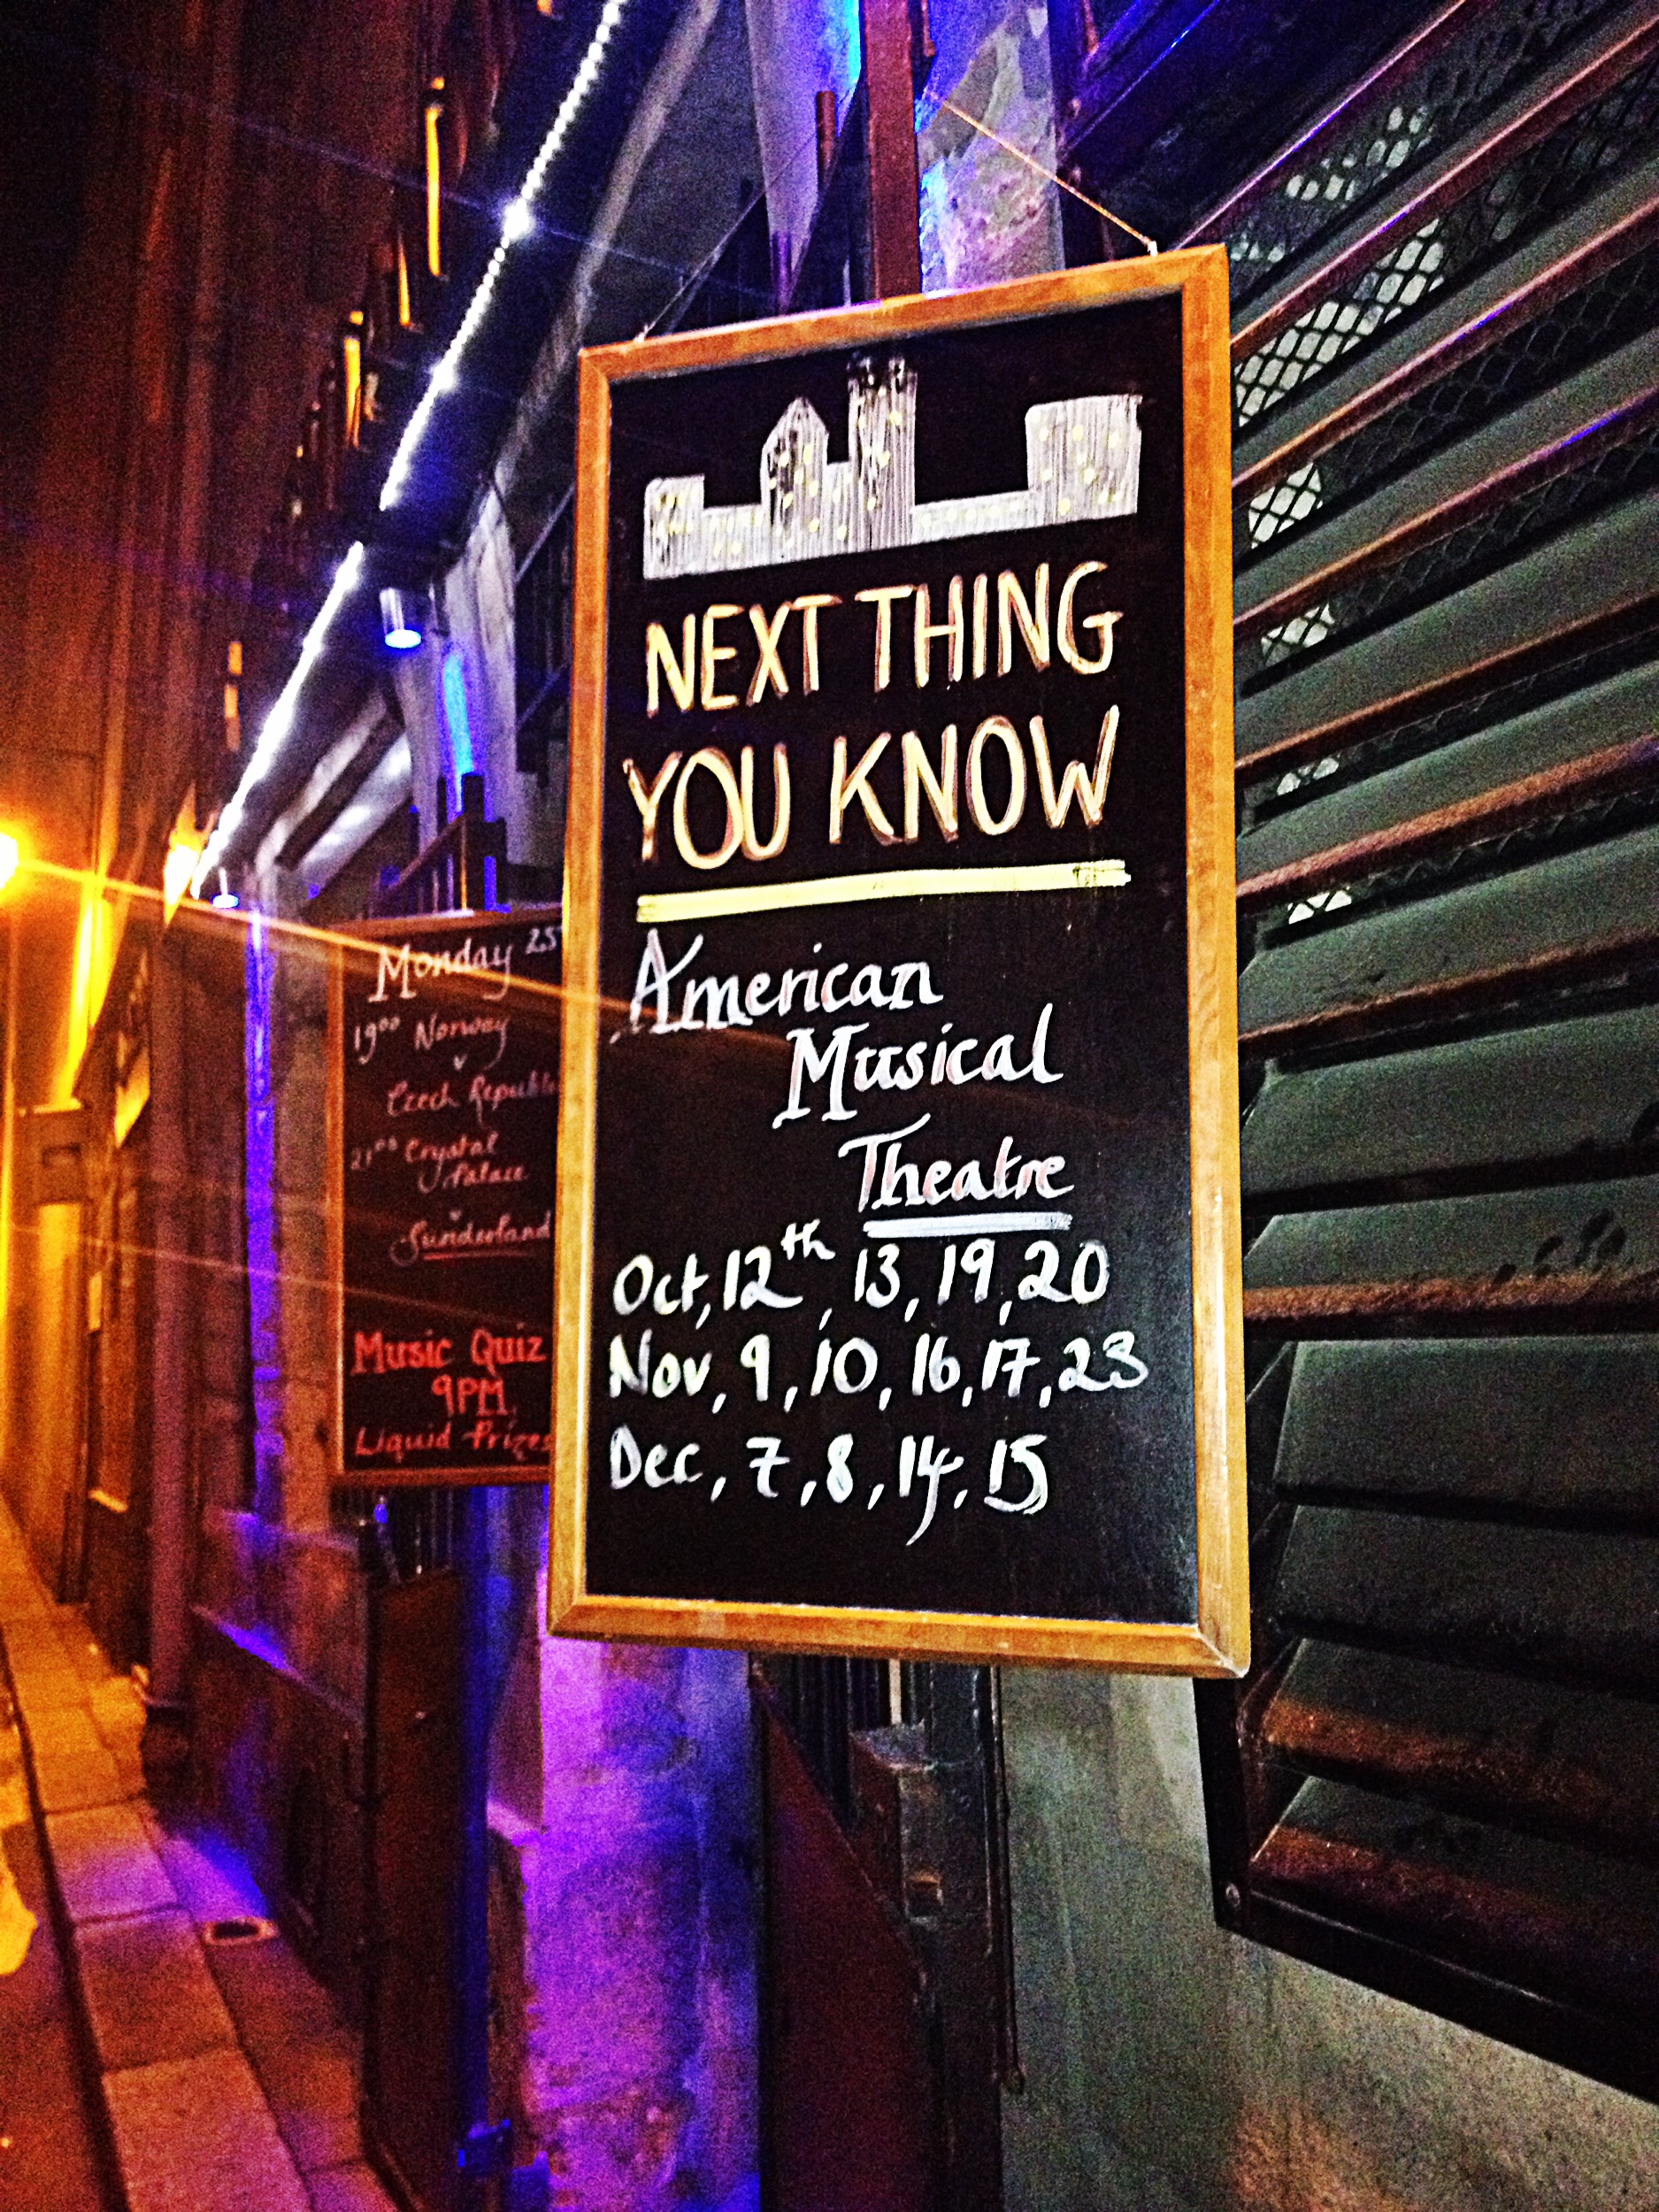 NEXT THING
YOU KNOW
American
Musical
Theatre
Oct, 12th, 13, 19, 20
Nov, 9, 10, 16, 17, 23
Dec, 7, 8, 14, 15
Monday 25
19 00 Norway
v
Czech
21 00 Crystal
Palace
v
Sunderland
Music Quiz
9PM
Liquid Prizes